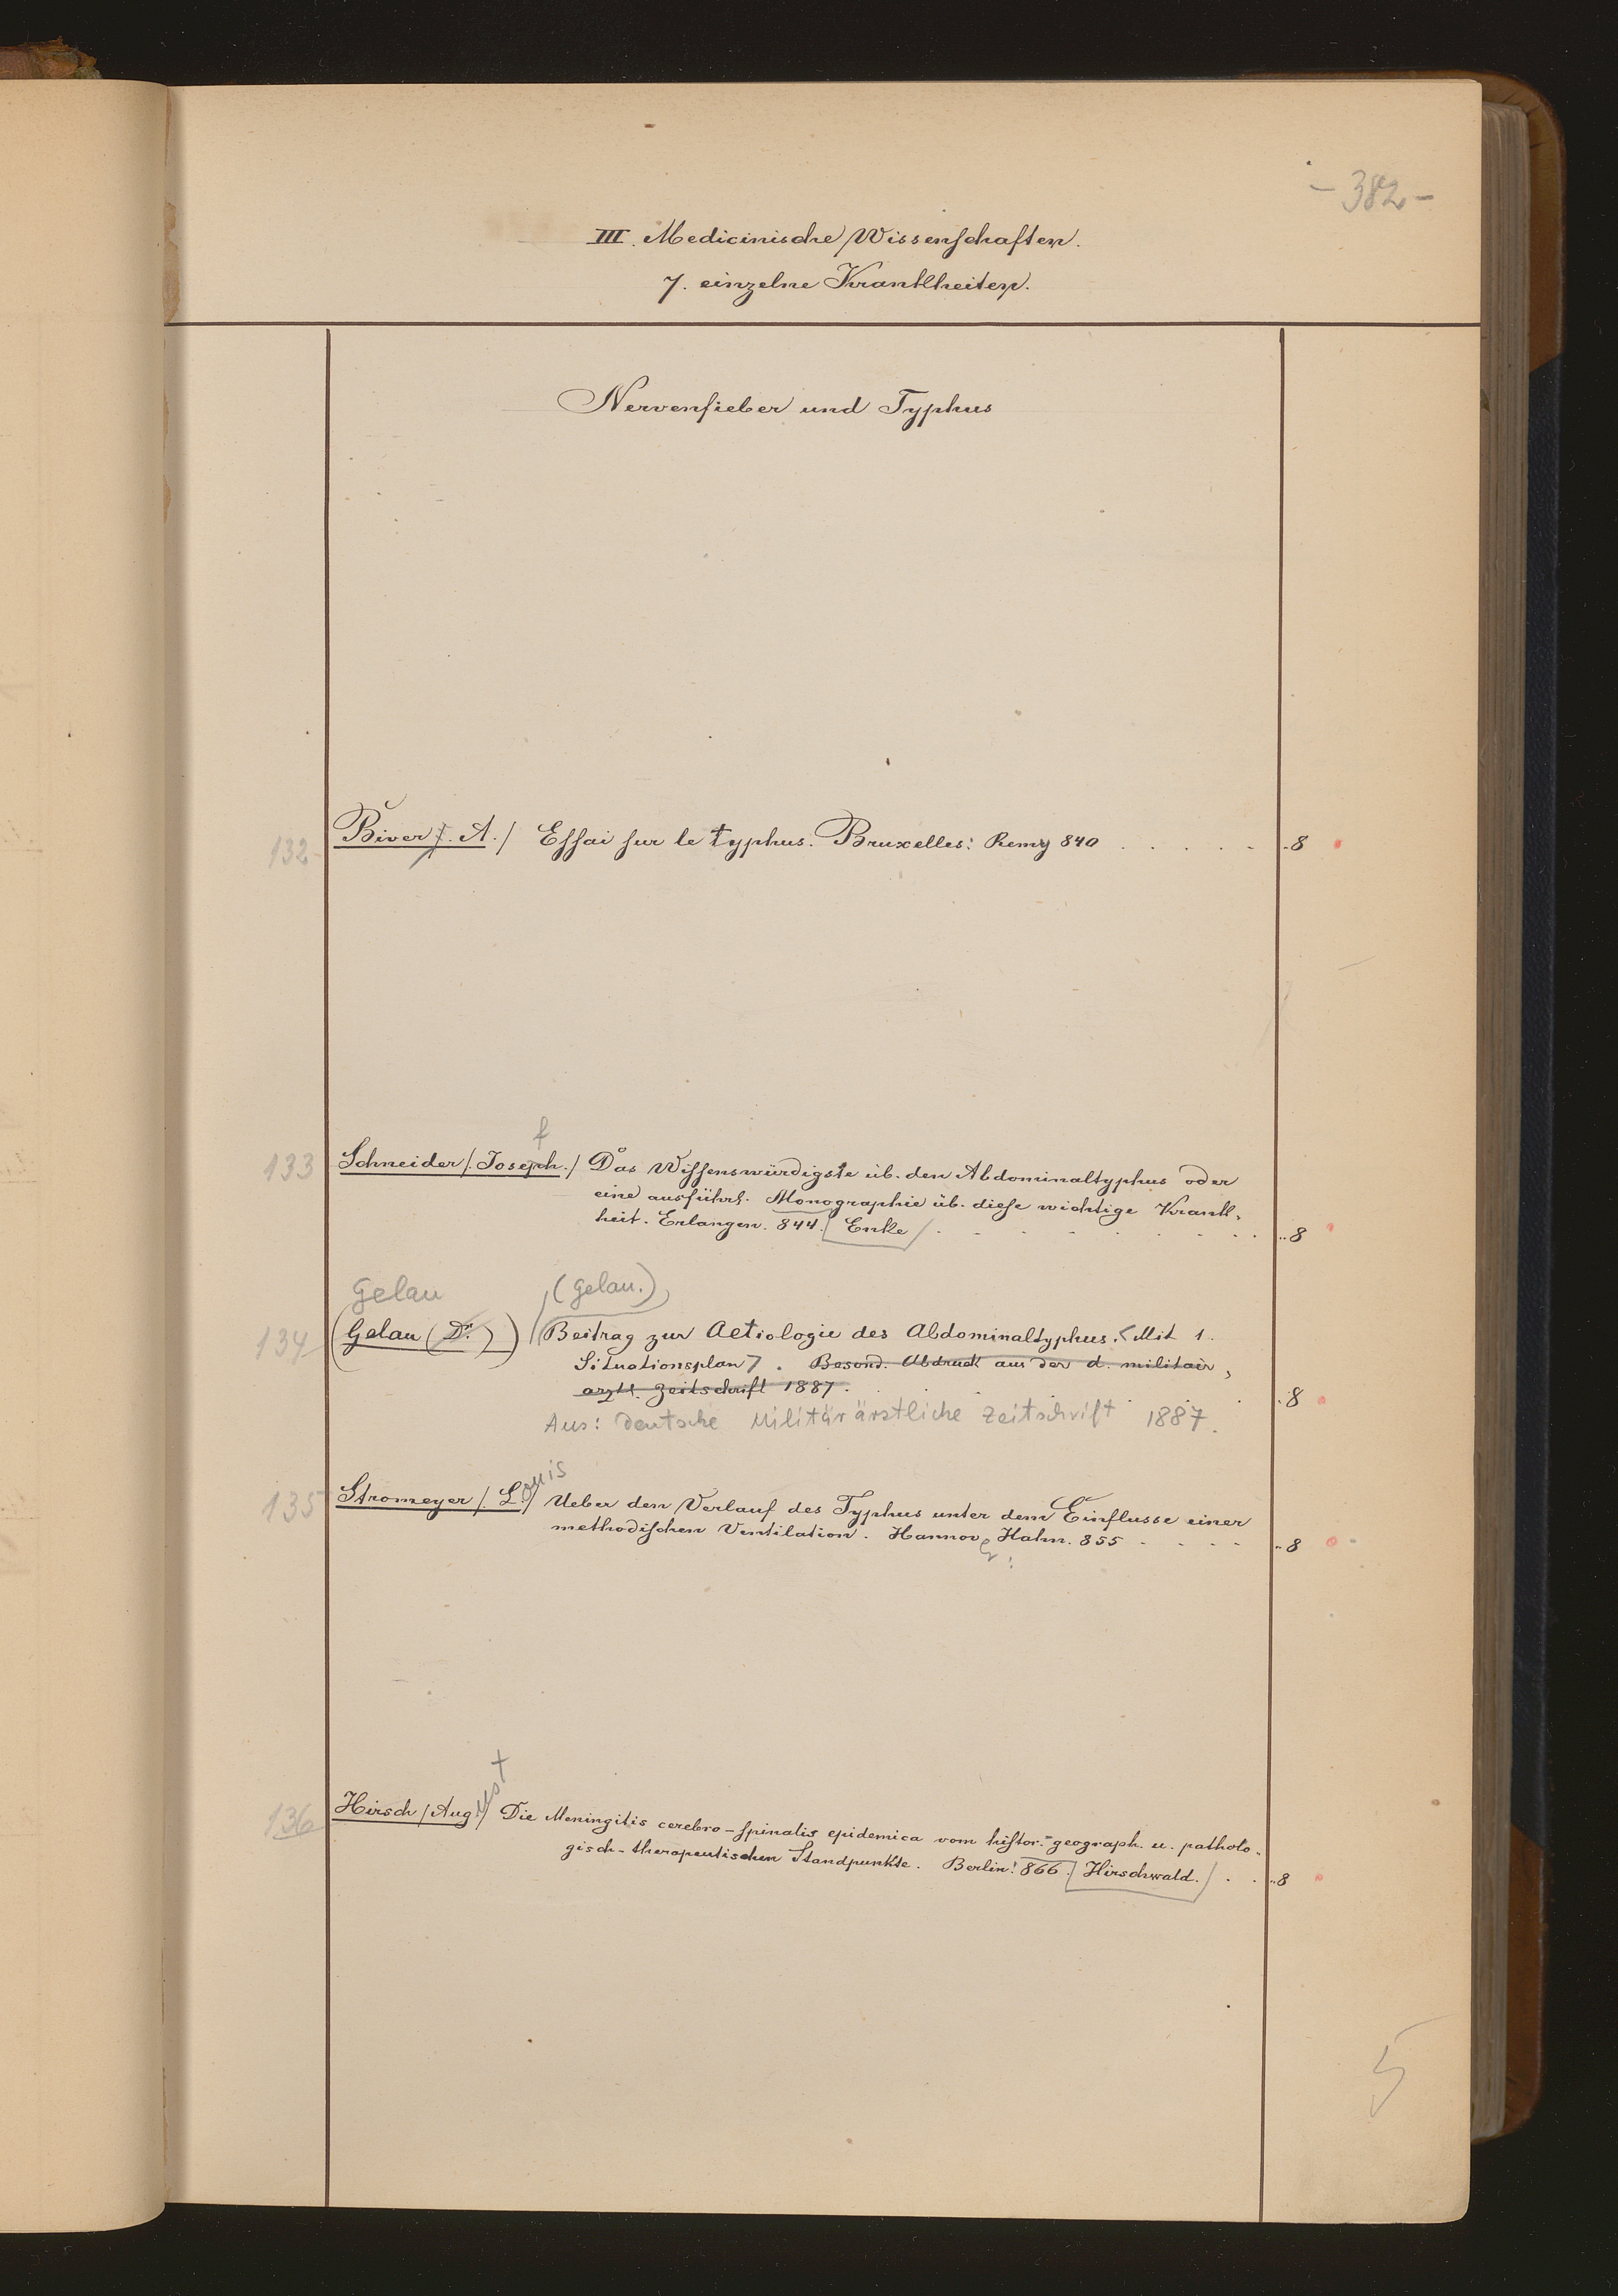 - 382 -
III. Medicinische Wissenschaften.
7. einzelne Krankheiten.
Nervenfieber und Typhus
132 Biver J. A./ Essai sur le typhus. Bruxelles: Remy 840 . . . . . . 8
f
133 Schneider /. Joseph./ Das Wissenswürdigste üb. den Abdominaltyphus oder
eine ausführl. Monographie üb. diese wichtige Krank-
heit. Erlangen. 844. / Enke / . . . . . . . . 8
Gelau (Gelau.)
134 (Gelau (Dr.)) Beitrag zur Aetiologie des Abdominaltyphus. < Mit 1.
Situationsplan >. Besond. Abdruck aus der d. militair,
arztl. Zeitschrift 1887. . . . . 8
Aus: Deutsche Militärärstliche Zeitschrift 1887.
135 Stromeyer /. Louis/ Ueber den Verlauf des Typhus unter dem Einflusse einer
methodischen Ventilation. Hannover: Hahn. 855 . . . . 8
136 Hirsch / August / Die Meningitis cerebro-spinalis epidemica vom histor.=geograph. u. patholo-
gisch-therapeutischen Standpunkte. Berlin! 866. / Hirschwald. / . . 8
5